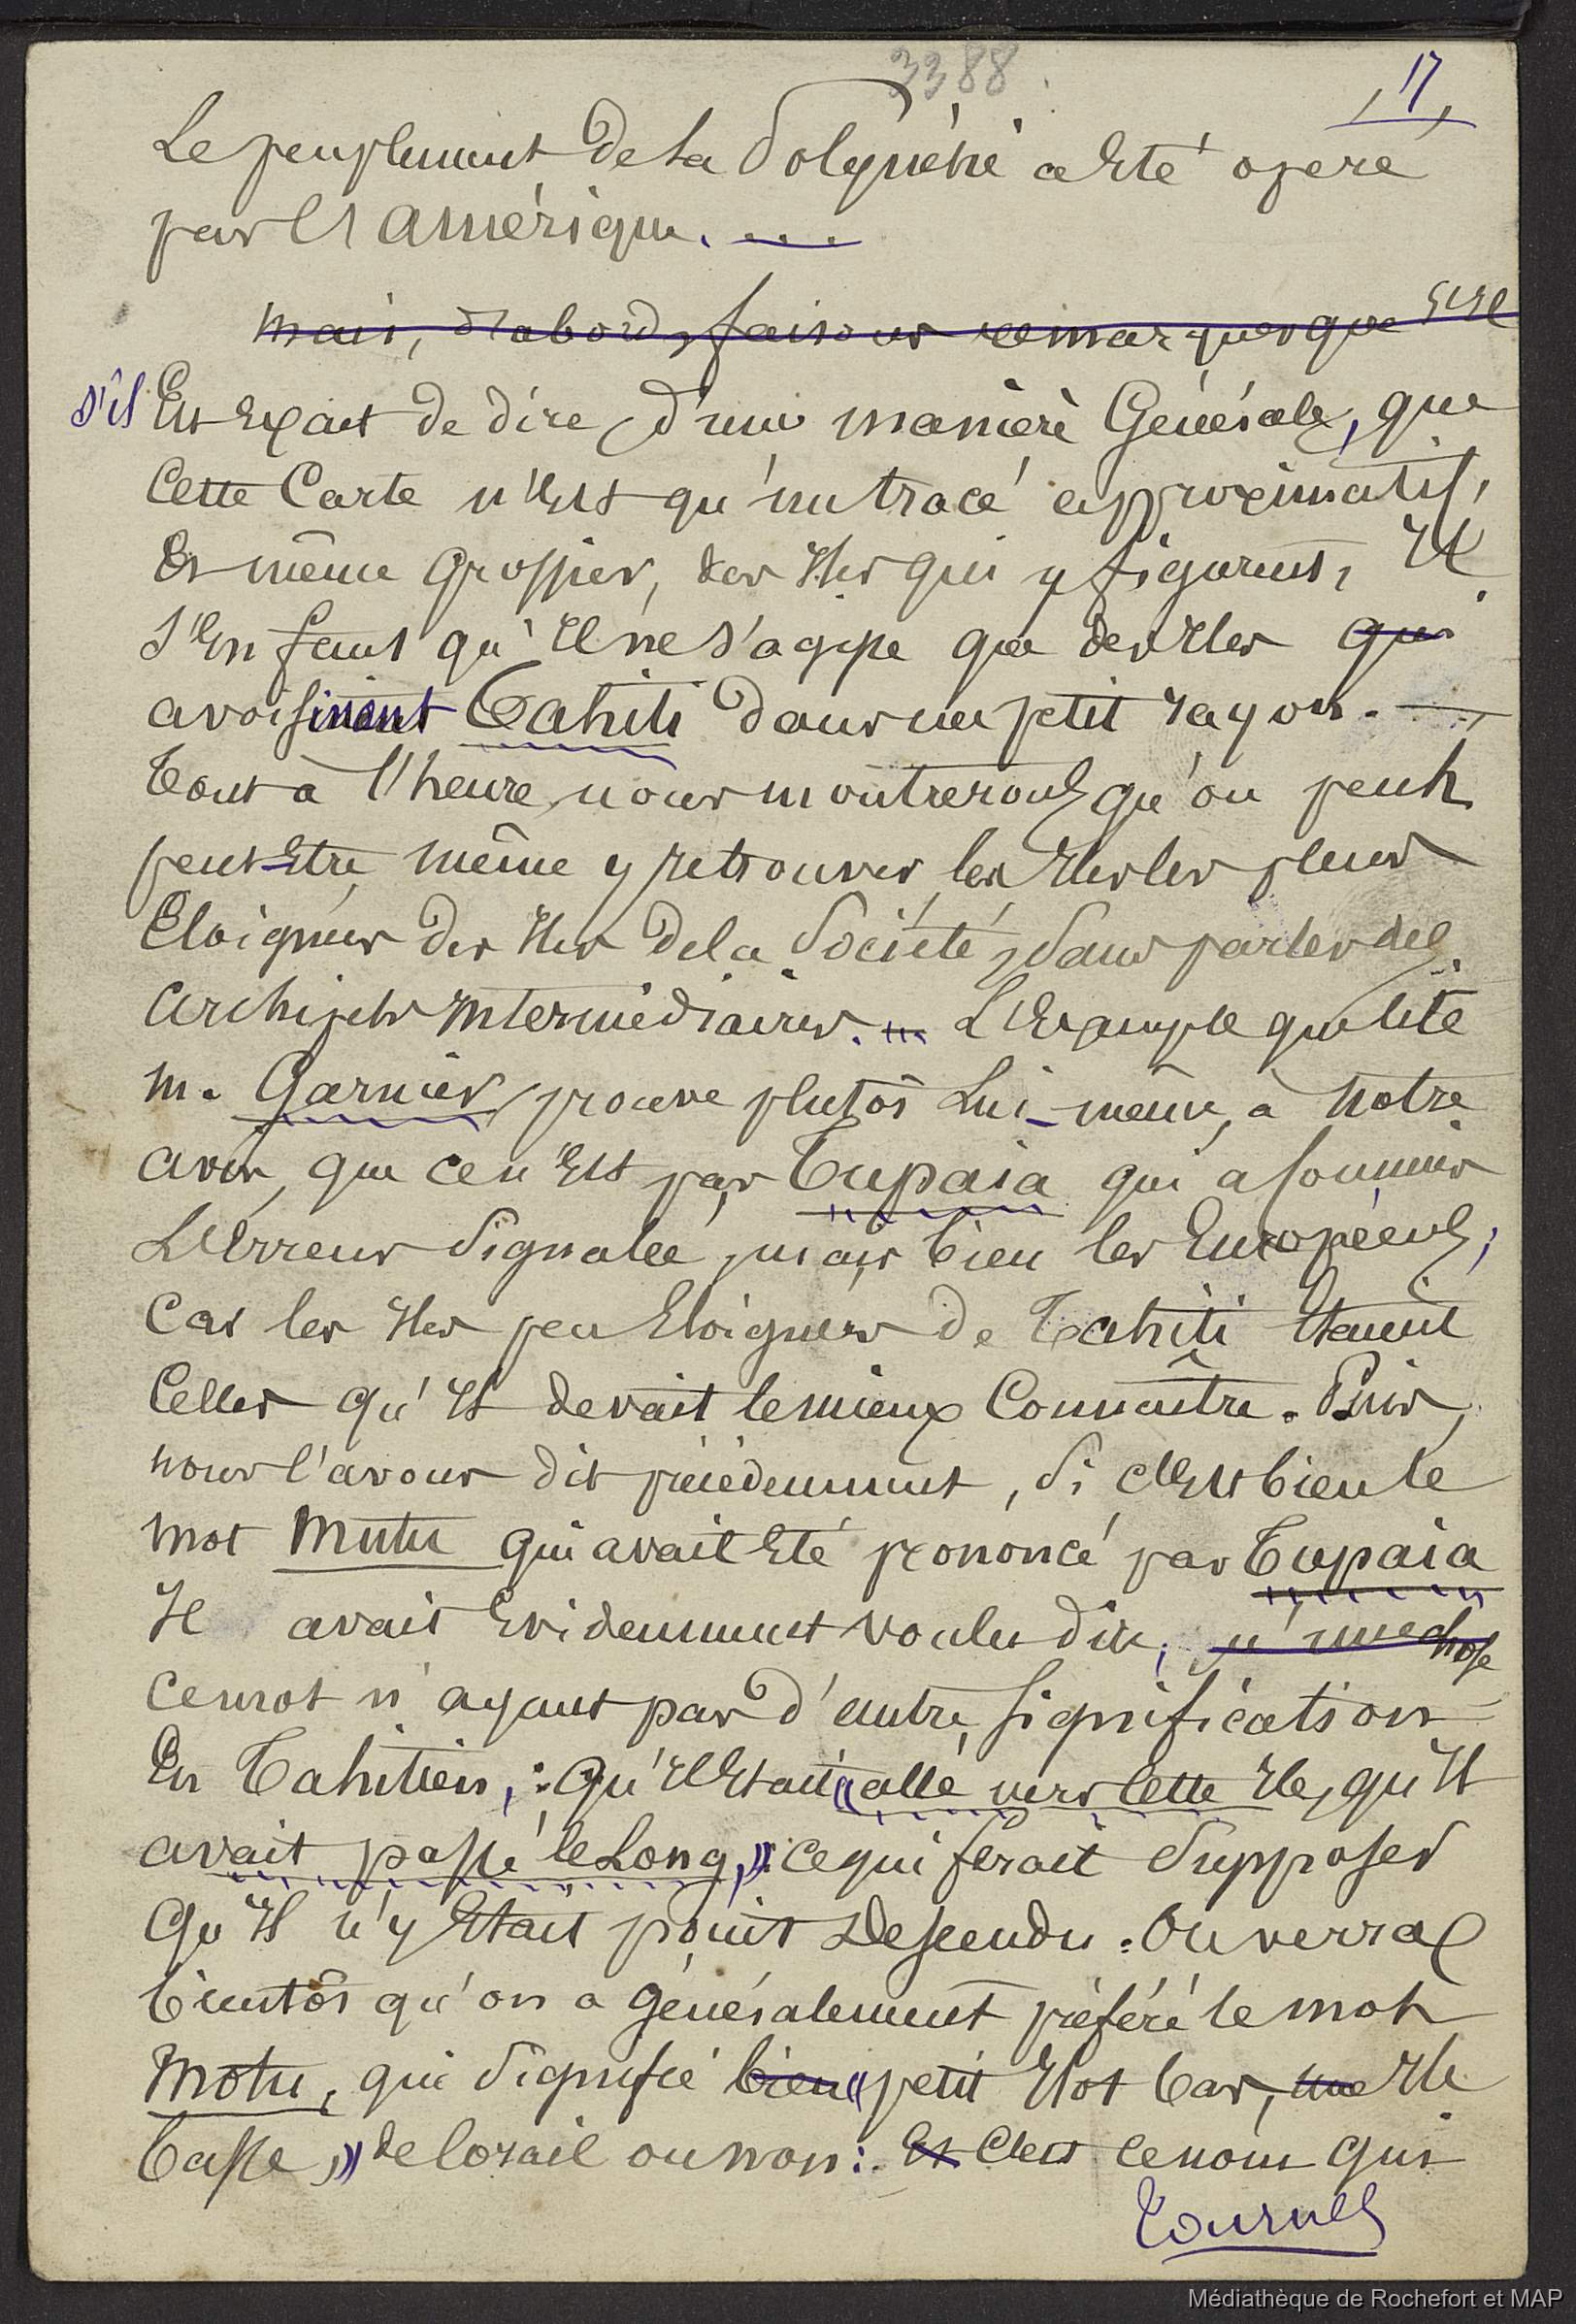 3388
17
Le peuplement de la Polynésie a été opéré
par l'Amérique. ...
Mais, d'abord, faisons remarquer que s'il
s'il Est exact de dire, d'une manière Générale, que
Cette Carte n'est qu'un tracé approximatif,
Et même grossier, des Iles qui y figurent, Il
S'En faut qu'il ne s'agisse que des Iles qui
avoisinent Tahiti dans un petit rayon. —
Tout à l'heure nous montrerons qu'on peut
peut-être même y retrouver les Iles les plus
Eloignées des Iles de la Société, Sans parler des
Archipels Intermédiaires. ... L'Exemple que cite
M. Garnier prouve plutôt Lui-même, à notre
avis, que ce n'est pas Tupaia qui a commis
L'Erreur Signalée, mais bien les Européens;
Car les Iles peu Eloignées de Tahiti Etaient
Celles qu'il devait le mieux Connaître. Puis,
nous l'avons dit précédemment, Si c'Est bien le
mot Mutu qui avait Eté prononcé par Tupaia
Il avait Evidemment voulu dire, qu'une chose
ce mot n'ayant pas d'autre signification
En Tahitien, : qu'il Etait "allé vers cette Ile, qu'il
avait passé le Long," ce qui ferait Supposer
Qu'il n'y Etait point Descendu. On verra
bientôt qu'on a généralement préféré le mot
Motu, qui Signifie bien "petit Ilot bas, une Ile
basse," de Corail ou non: Et C'est ce nom qui
Tournez
Médiathèque de Rochefort et MAP